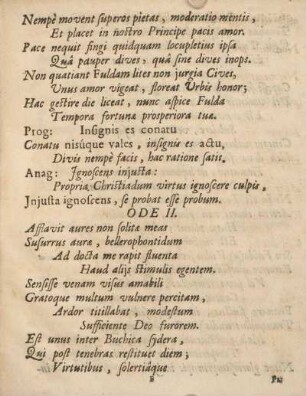 Nempè movent superos pietas, moderatio mentis,
Et placet in nostro Principe pacis amor.
Pace nequit fingi quidquam locupletius ipsa
Quâ pauper dives, quâ sine dives inops.
Non quatiant Fuldam lites non jurgia Cives,
Unus amor vigeat, floreat Urbis honor;
Hac gestire die liceat, nunc aspice Fulda
Tempora fortunæ prosperiora tuæ.
Prog: Insignis es conatu
Conatu nisúque vales, insignis es actu,
Divis nempè facis, hac ratione satis.
Anag: Ignoscens injusta:
Propria Christiadum virtus ignoscere culpis,
Injusta ignoscens, se probat esse probum.
ODE II.
Afflavit aures non solita meas
Susurrus aura, bellerophontidum
Ad docta me rapit fluenta
Haud alijs stimulis egentem.
Sensisse venam visus amabili
Gratoque multum vulnere percitam,
Ardor titillabat, modestum
Sufficiente Deo furorem.
Est unus inter Buchica sydera,
Qui post tenebras restituet diem;
Virtutibus, solertiâque